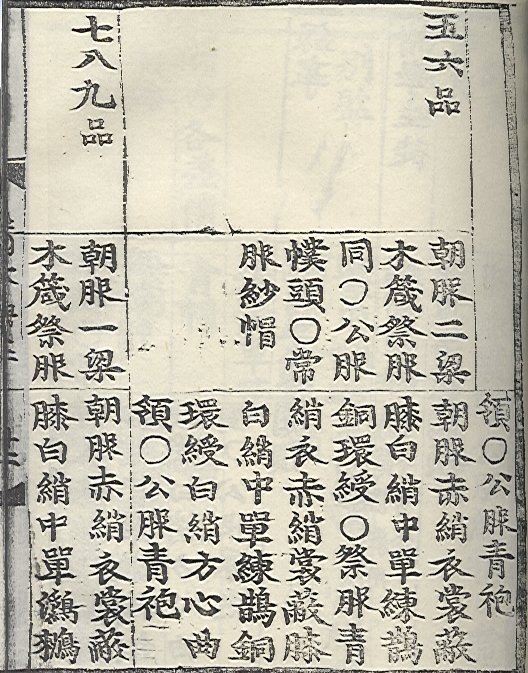 領〇公服青袍
五六品
朝服二梁
木箴祭服
同〇公服
幞頭〇常
服紗帽
朝服赤綃衣裳蔽
膝白綃中單練鵲
銅環綬〇祭服青
綃衣赤綃裳蔽膝
白綃中單練鵲銅
環綬白綃方心曲
領〇公服青袍
七八九品
朝服一梁
木箴祭服
朝服赤綃衣裳蔽
膝白綃中單鸂鶒